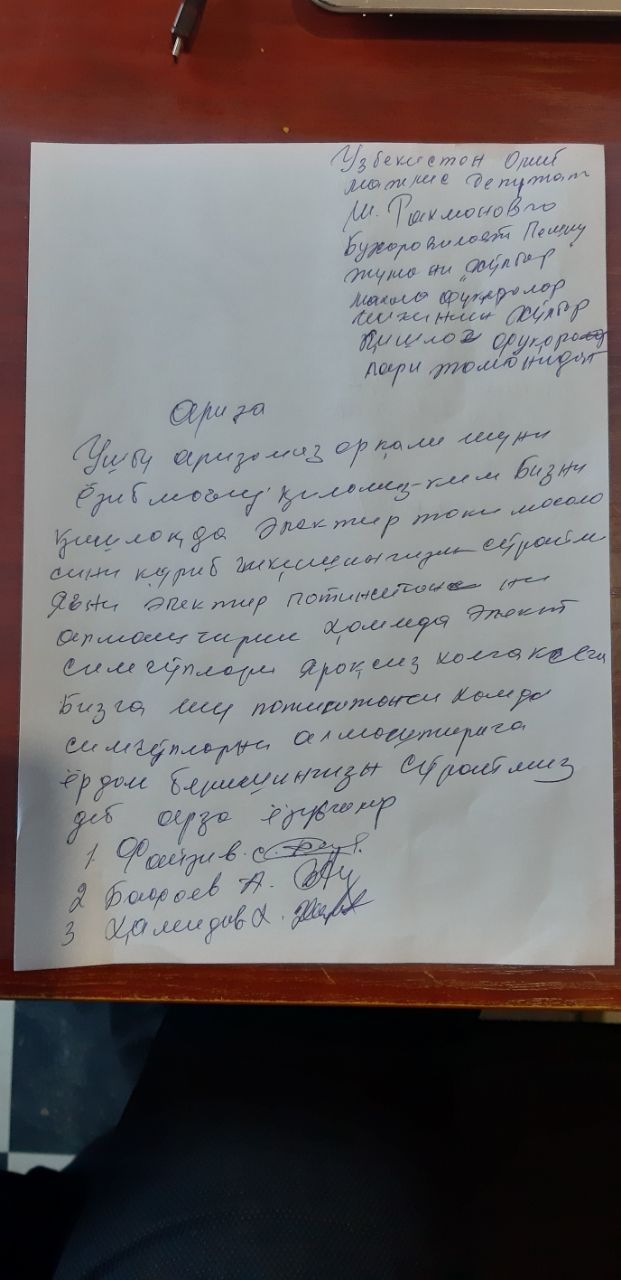 Узбекистон Олий
мажлис депутат
Ш. Рахмоновга
Бухоро вилоят Пешку
тумани
махалла фукаролар
йигини
Қишлоғ фукаро
лари томонидан
Ариза
Ушбу аризамиз орқали шуни
ёзиб маълум қиламиз-ким бизни
қишлоқда электир токи масала
сини куриб чикишингизни сўраймиз
Яъни электир ни
алмаштириш ҳамда элект
симёғлари яроқсиз колгаклеги
Бизга шу хамда
симёғларни алмаштиришга
ёрдам беришингизни сўраймиз
деб арза ёзувчилар
1 Файзиев. С
2 Бафоев А.
3 Ҳамидов Х.